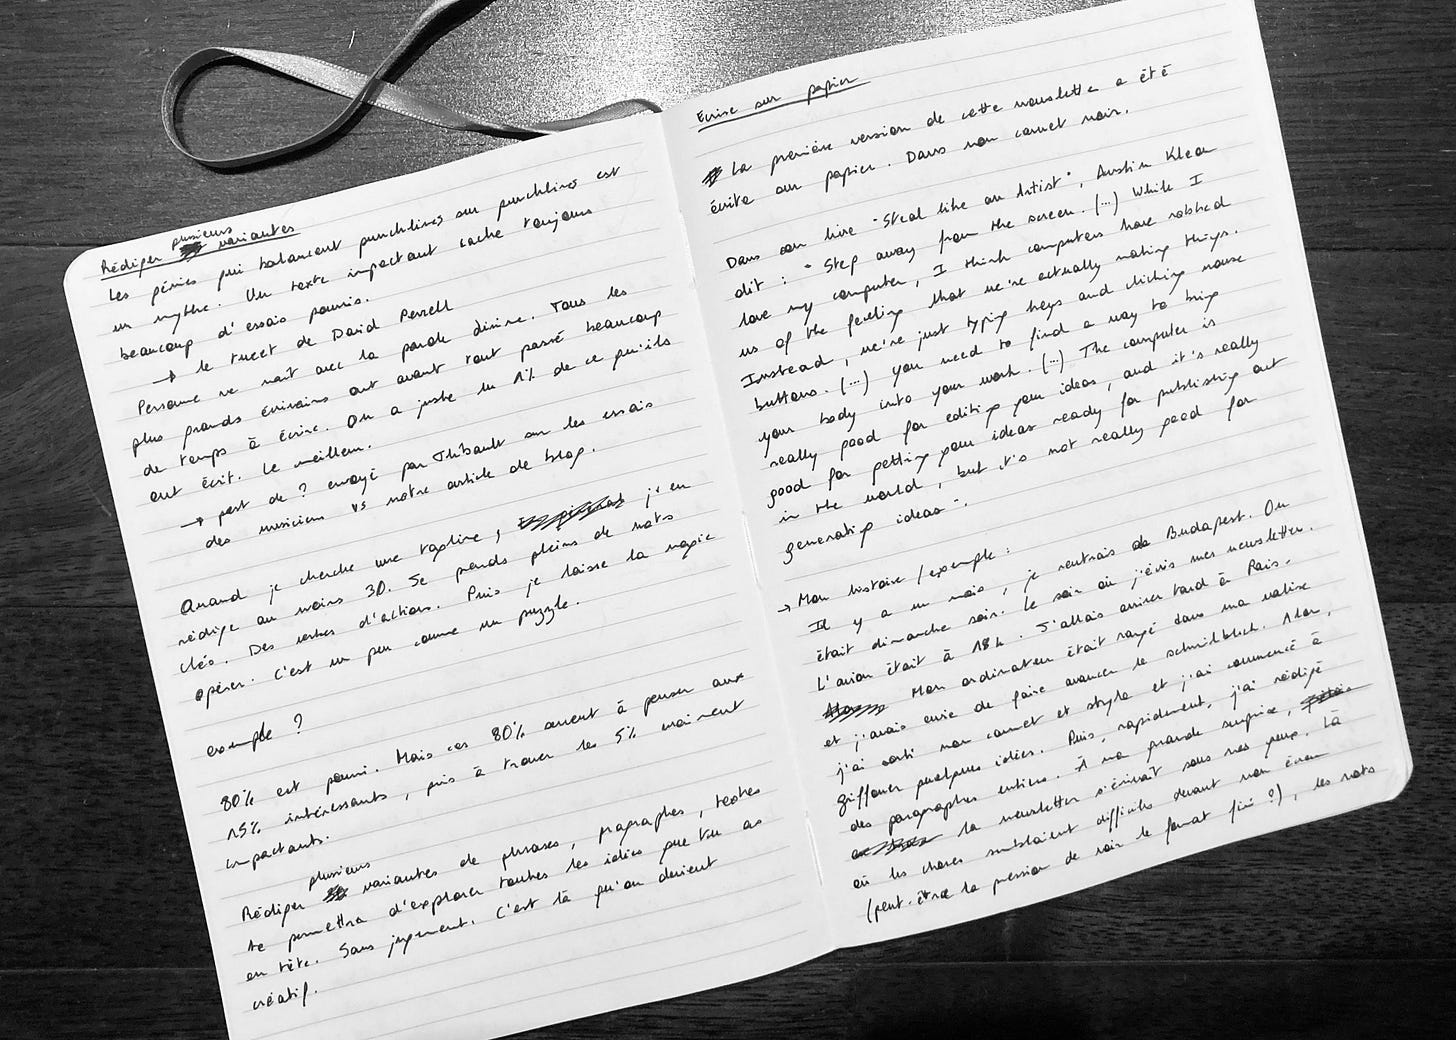 Rédiger plusieurs variantes
Les génies qui balancent punchlines sur punchlines est
un mythe. Un texte impactant cache toujours
beaucoup d'essais pourris.
→ le tweet de David Perell
Personne ne naît avec la parole divine. Tous les
plus grands écrivains ont avant tout passé beaucoup
de temps à écrire. On a juste lu 1% de ce qu'ils
ont écrit. Le meilleur.
→ post de ? envoyé par Thibault sur les essais
des musiciens vs notre article de blog.
Quand je cherche une tagline, j'en
rédige au moins 30. Je prends pleins de mots
clés. Des verbes d'actions. Puis je laisse la magie
opérer. C'est un peu comme un puzzle.
exemple ?
80% est pourri. Mais ces 80% servent à penser aux
15% intéressants, puis à trouver les 5% vraiment
impactants.
Rédiger plusieurs variantes de phrases, paragraphes, textes
te permettra d'explorer toutes les idées que tu as
en tête. Sans jugement. C'est là qu'on devient
créatif.
Ecrire sur papier
La première version de cette newsletter a été
écrite sur papier. Dans mon carnet noir.
Dans son livre "Steal like an Artist", Austin Kleon
dit : "Step away from the screen. (...) While I
love my computer, I think computers have robbed
us of the feeling that we're actually making things.
Instead, we're just typing keys and cliching mouse
buttons. (...) you need to find a way to bring
your body into your work. (...) The computer is
really good for editing your ideas, and it's really
good for getting your ideas ready for publishing out
in the world, but it's not really good for
generating ideas".
→ Mon histoire / exemple :
Il y a un mois, je rentrais de Budapest. On
était dimanche soir. Le soir où j'écris mes newsletter.
L'avion était à 18h. J'allais arriver tard à Paris.
Mon ordinateur était rangé dans ma valise
et j'avais envie de faire avancer le schmilblick. Alors,
j'ai sorti mon carnet et stylo et j'ai commencé à
griffoner quelques idées. Puis, rapidement, j'ai rédigé
des paragraphes entiers. À ma grande surprise,
la newsletter s'écrivait sous mes yeux. Là
où les choses semblaient difficiles devant mon écran
(peut-être la pression de voir le format fini ?), les mots